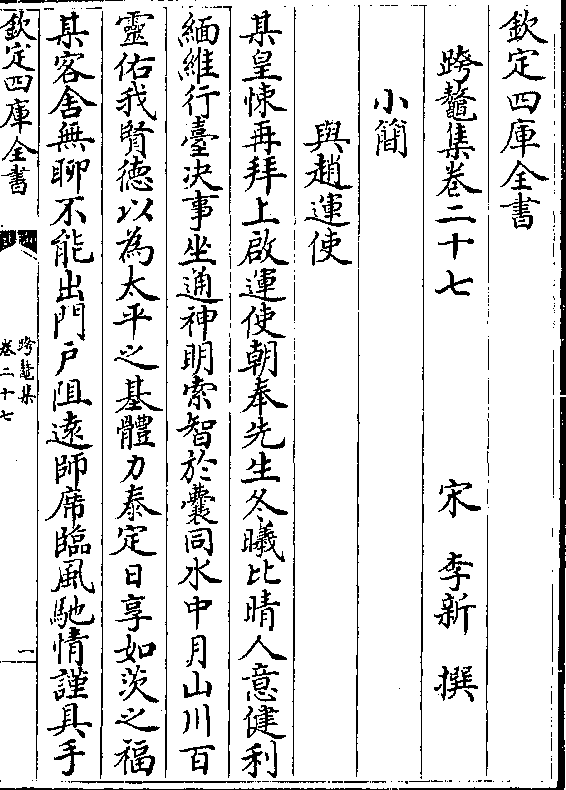 欽定四庫全書
跨鼇集卷二十七
宋 李新 撰
小簡
與趙運使
某皇悚再拜上啟運使朝奉先生冬曦比晴人意健利
緬維行臺决事坐通神明索智於囊同水中月山川百
靈佑我賢德以為太平之基體力泰定日享如茨之福
某客舍無聊不能出門户阻逺師席臨風馳情謹具手
欽定四庫全書
跨鼇集
卷二十七
一